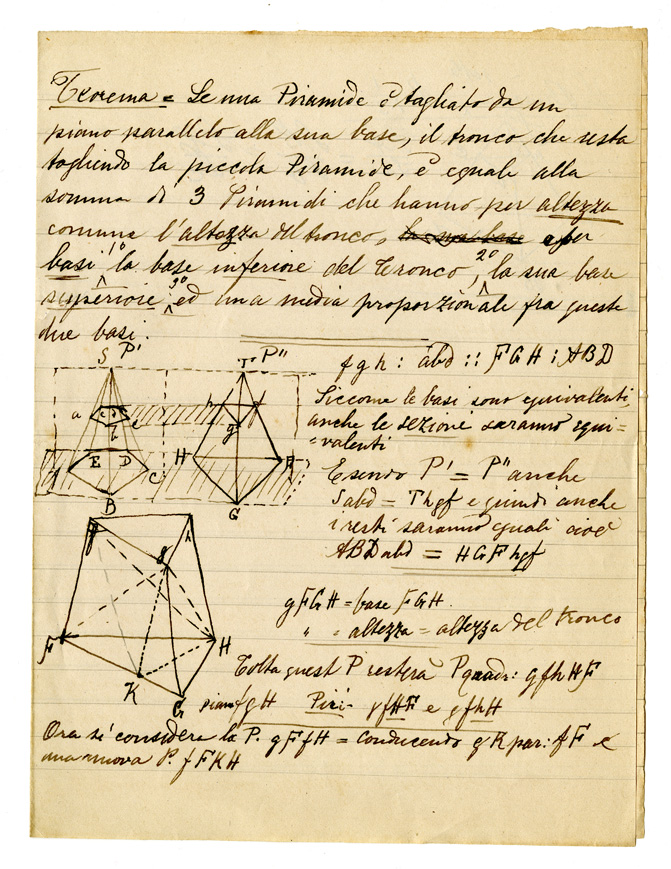 Teorema = Se una Piramide è tagliato da un
piano parallelo alla sua base, il tronco che resta
tagliendo la piccola Piramide, è eguale alla
somma di 3 Piramidi che hanno per altezza
comune l'altezza del tronco, la sua base e per
basi 1º la base inferiore del Tronco, 2º la sua base
superiore, 3º ed una media proporzionale fra queste
due basi.
S P' T P''
fgh : abd :: FGH : ABD
Siccome le basi sono equivalenti,
anche le sezioni saranno equi-
valenti
a b
g
A E D C H F
B G
Esendo P' = P'' anche
Sabd = Thgf e quindi anche
i resti saranno eguali cioè
ABDabd = HGFhgf
h
g
gFGH = base FGH.
" = altezza = altezza del tronco
F H
K
G
Tolta quest P resterà P quadr: gfhHF
fgH Piri- gfHF e gfhH
Ora si considera la P. gFfH = Conducendo gK par: fF e
una nuova P. fFKH